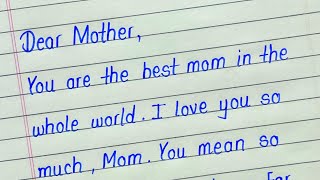 Dear Mother,
You are the best mom in the
whole world. I love you so
much, Mom. You mean so